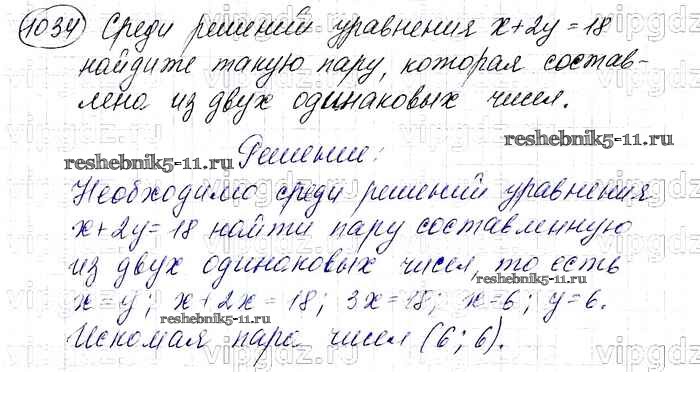 1034 Среди решений уравнения x+2y=18
найдите такую пару, которая состав-
лена из двух одинаковых чисел.
reshebnik5-11.ru
Решение:
reshebnik5-11.ru
Необходимо среди решений уравнения
x+2y=18 найти пару составленную
из двух одинаковых чисел, то есть
reshebnik5-11.ru
x=y; x+2x=18; 3x=18; x=6; y=6.
reshebnik5-11.ru
Искомая пара чисел (6; 6).